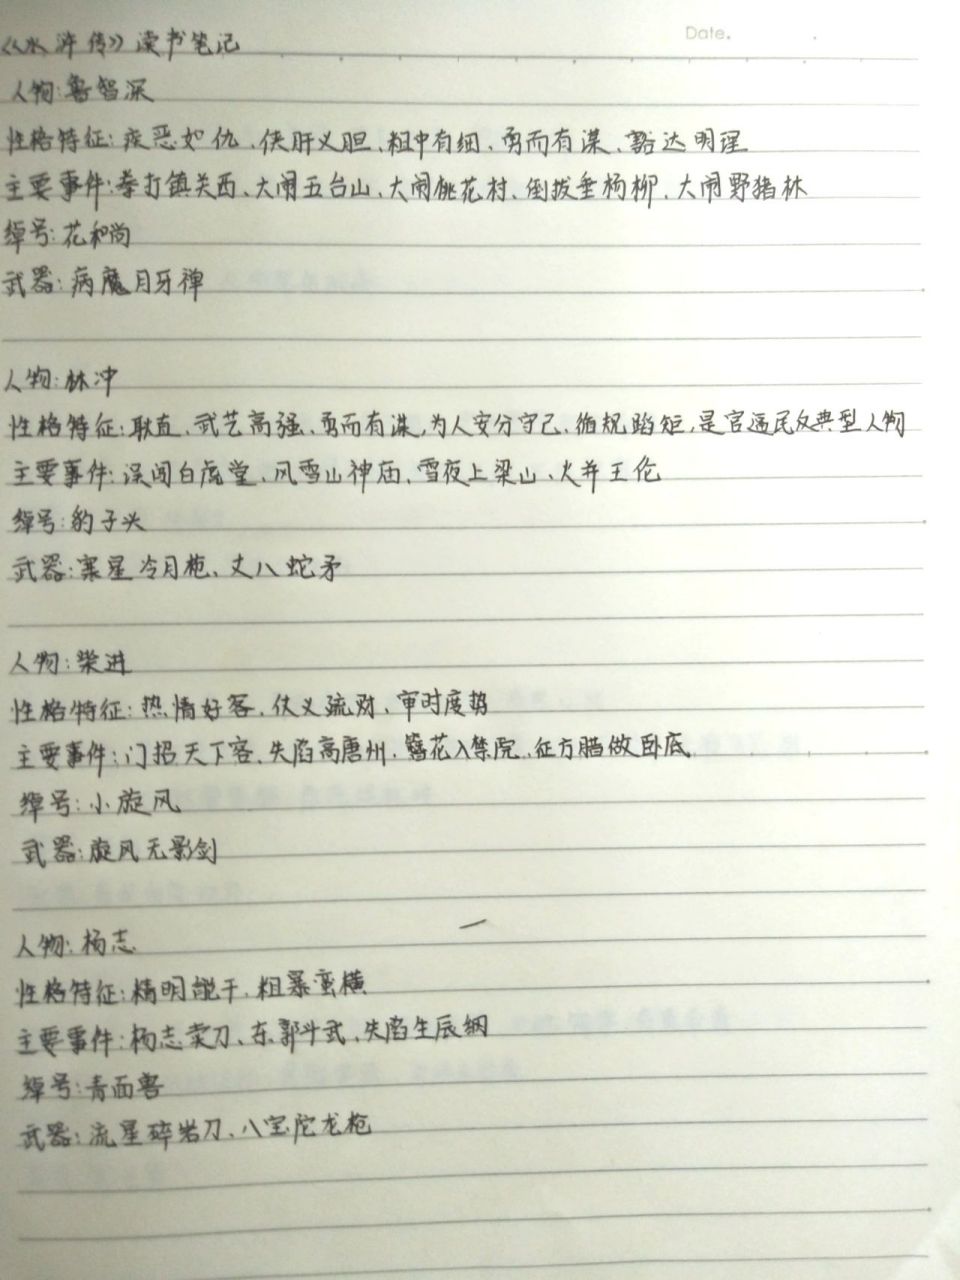 Date.
《水浒传》读书笔记
人物:鲁智深
性格特征:疾恶如仇、侠肝义胆、粗中有细、勇而有谋、豁达明理
主要事件:拳打镇关西、大闹五台山、大闹桃花村、倒拔垂杨柳、大闹野猪林
绰号:花和尚
武器:病魔月牙禅
人物:林冲
性格特征:耿直、武艺高强、勇而有谋,为人安分守己、循规蹈矩,是官逼民反典型人物
主要事件:误闯白虎堂、风雪山神庙、雪夜上梁山、火并王伦
绰号:豹子头
武器:寒星冷月枪、丈八蛇矛
人物:柴进
性格特征:热情好客、仗义疏财、审时度势
主要事件:门招天下客、失陷高唐州、簪花入禁院、征方腊做卧底
绰号:小旋风
武器:旋风无影剑
人物:杨志
性格特征:精明能干、粗暴蛮横
主要事件:杨志卖刀、东郭斗武、失陷生辰纲
绰号:青面兽
武器:流星碎岩刀、八宝陀龙枪